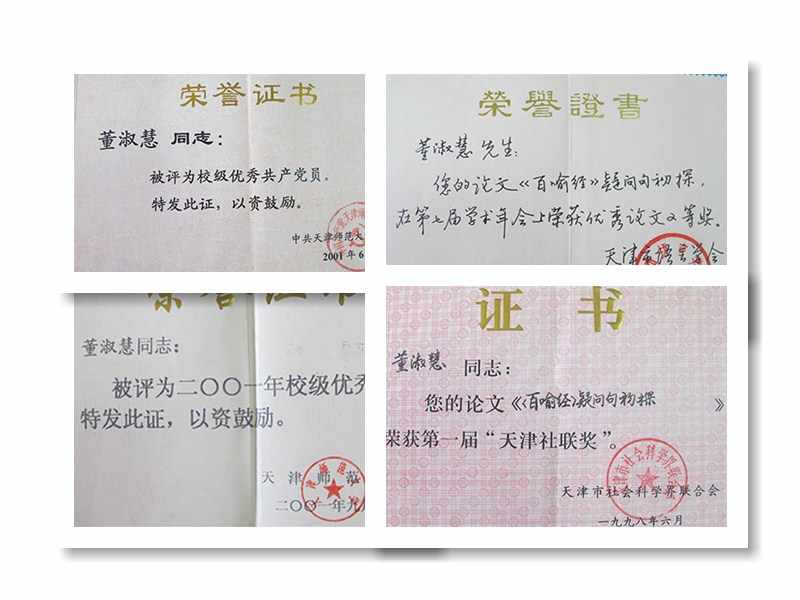 荣誉证书
董淑慧 同志：
被评为校级优秀共产党员。
特发此证，以资鼓励。
中共天津师范大
2001年6
榮譽證書
董淑慧 先生：
您的论文《百喻经》疑问句初探，
在第七届学术年会上荣获优秀论文二等奖。
天津市语言学会
荣誉证书
董淑慧同志：
被评为二〇〇一年校级优秀
特发此证，以资鼓励。
天津师范
二〇〇一年九月
证书
董淑慧 同志：
您的论文《《百喻经》疑问句初探》
荣获第一届“天津社联奖”。
天津市社会科学界联合会
一九九八年六月